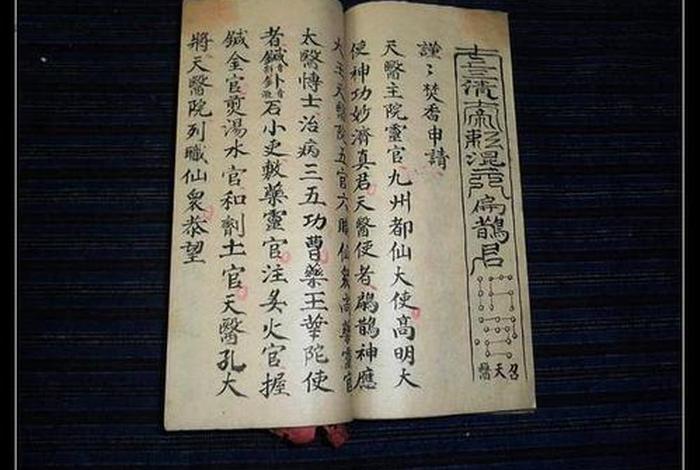 三清
扁鵲君
召天醫
謹〻焚香申請
天醫主院靈官九州都仙大使高明大
使神功妙濟真君天醫使者鶣鵲神應
天醫院五官六職仙衆高靈官
太醫博士治病三五功曹藥王華陀使
者鍼石小吏敷藥靈官注炙火官握
鍼金官煎湯水官和劑土官天醫孔大
將天醫院列職仙衆恭望